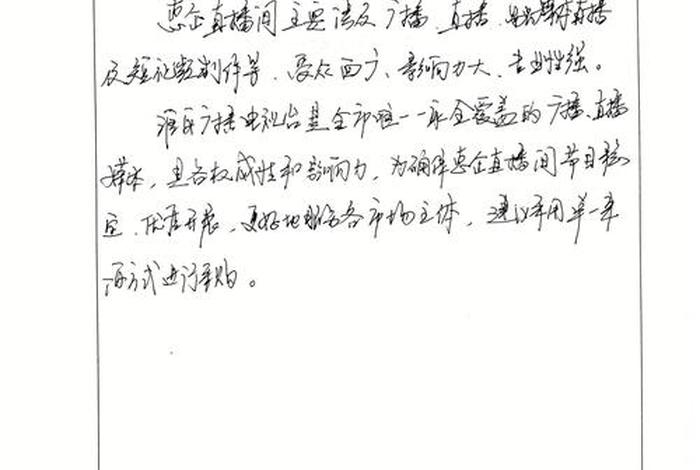 惠企直播间主要涉及广播、直播、直播
及短视频制作等，受众面广、影响力大、专业性强。
广播电视台是全市唯一一家全覆盖的广播、直播
媒体，具备权威性和影响力，为确保惠企直播间节目稳
定、优质开展，更好地服务各市场主体，建议采用单一来
源方式进行采购。